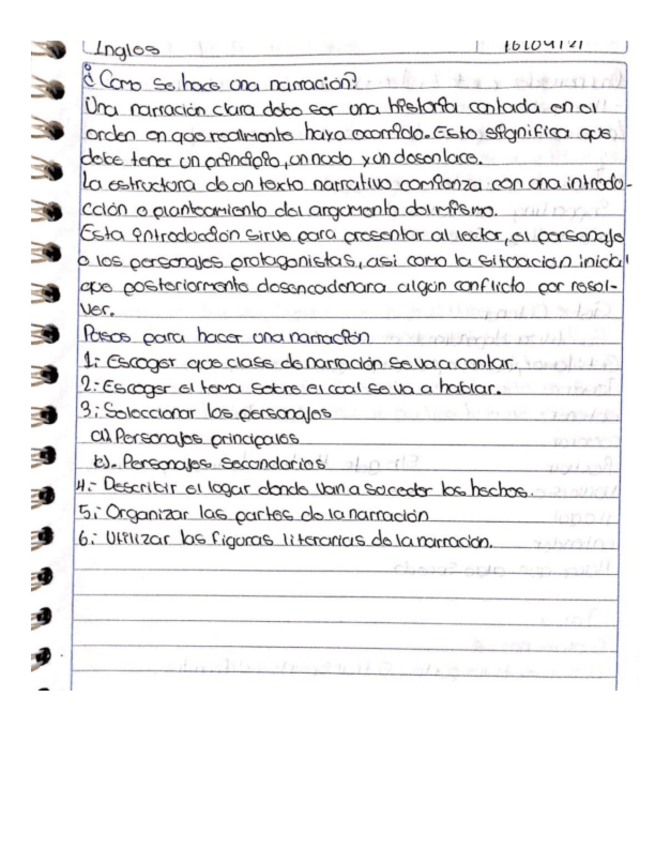 Ingles 16/04/21
¿Como se hace una narración?
Una narración clara debe ser una historia contada en el
orden en que realmente haya ocurrido. Esto significa que
debe tener un principio, un nudo y un desenlace.
La estructura de un texto narrativo comienza con una introdu-
cción o planteamiento del argumento del mismo.
Esta introducción sirve para presentar al lector, el personaje
o los personajes protagonistas, asi como la situación inicial
que posteriormente desencadenara algún conflicto por resol-
ver.
Pasos para hacer una narración
1: Escoger que clase de narración se va a contar.
2: Escoger el tema sobre el cual se va a hablar.
3: Seleccionar los personajes
a) Personajes principales
b). Personajes secundarios
4.- Describir el lugar donde van a suceder los hechos.
5: Organizar las partes de la narración
6: Utilizar las figuras literarias de la narración.